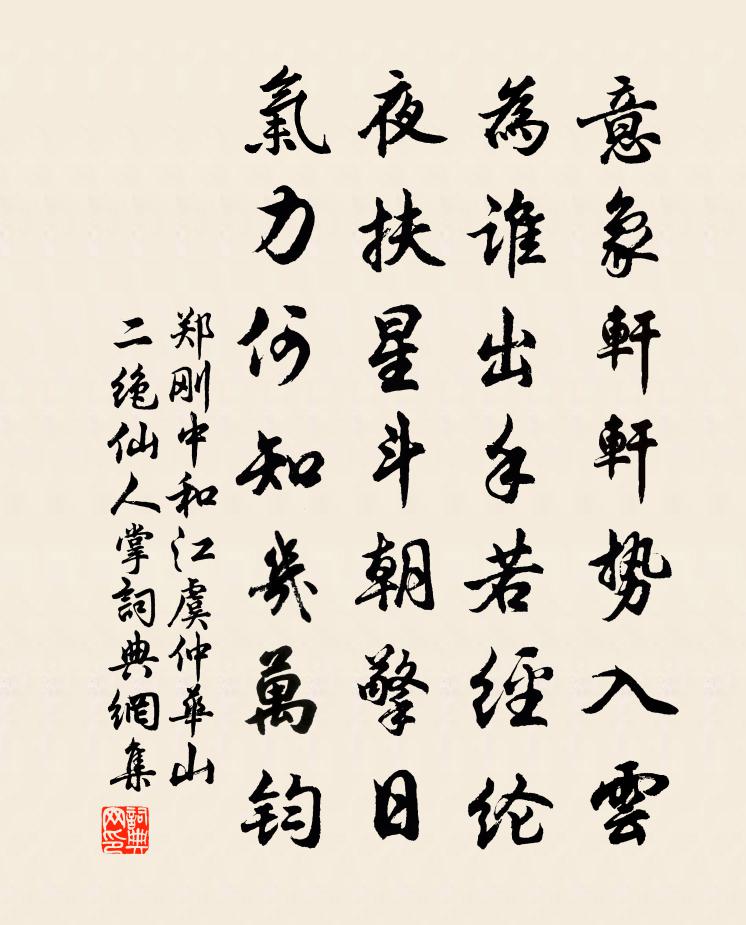 意象軒軒势入雲
為誰出手若經纶
夜扶星斗朝擎日
氣力何知幾萬钧
郑刚中和江虞仲華山
二绝仙人掌詞典網集
詞典
网印